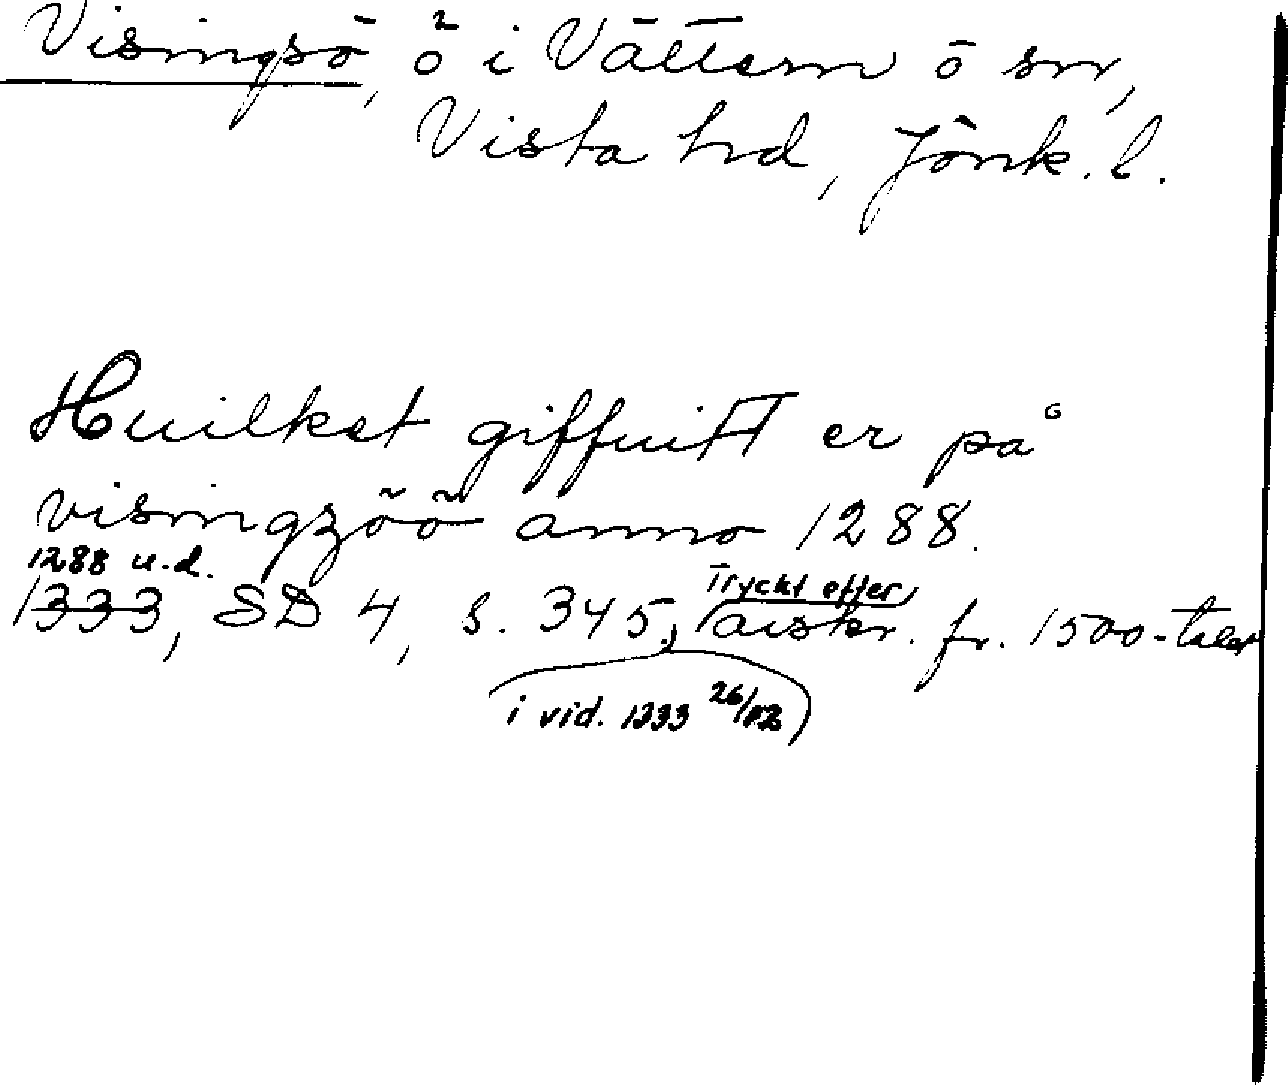 Visingsö, ö i Vättern o sn,
Vista hd, Jönk. l.
Huilket giffuitt er på
visingzöö anno 1288.
1288 u.d.
1333, SD 4, s. 345, Tryckt efter
avskr. fr. 1500-talet
i vid. 1333 26/12